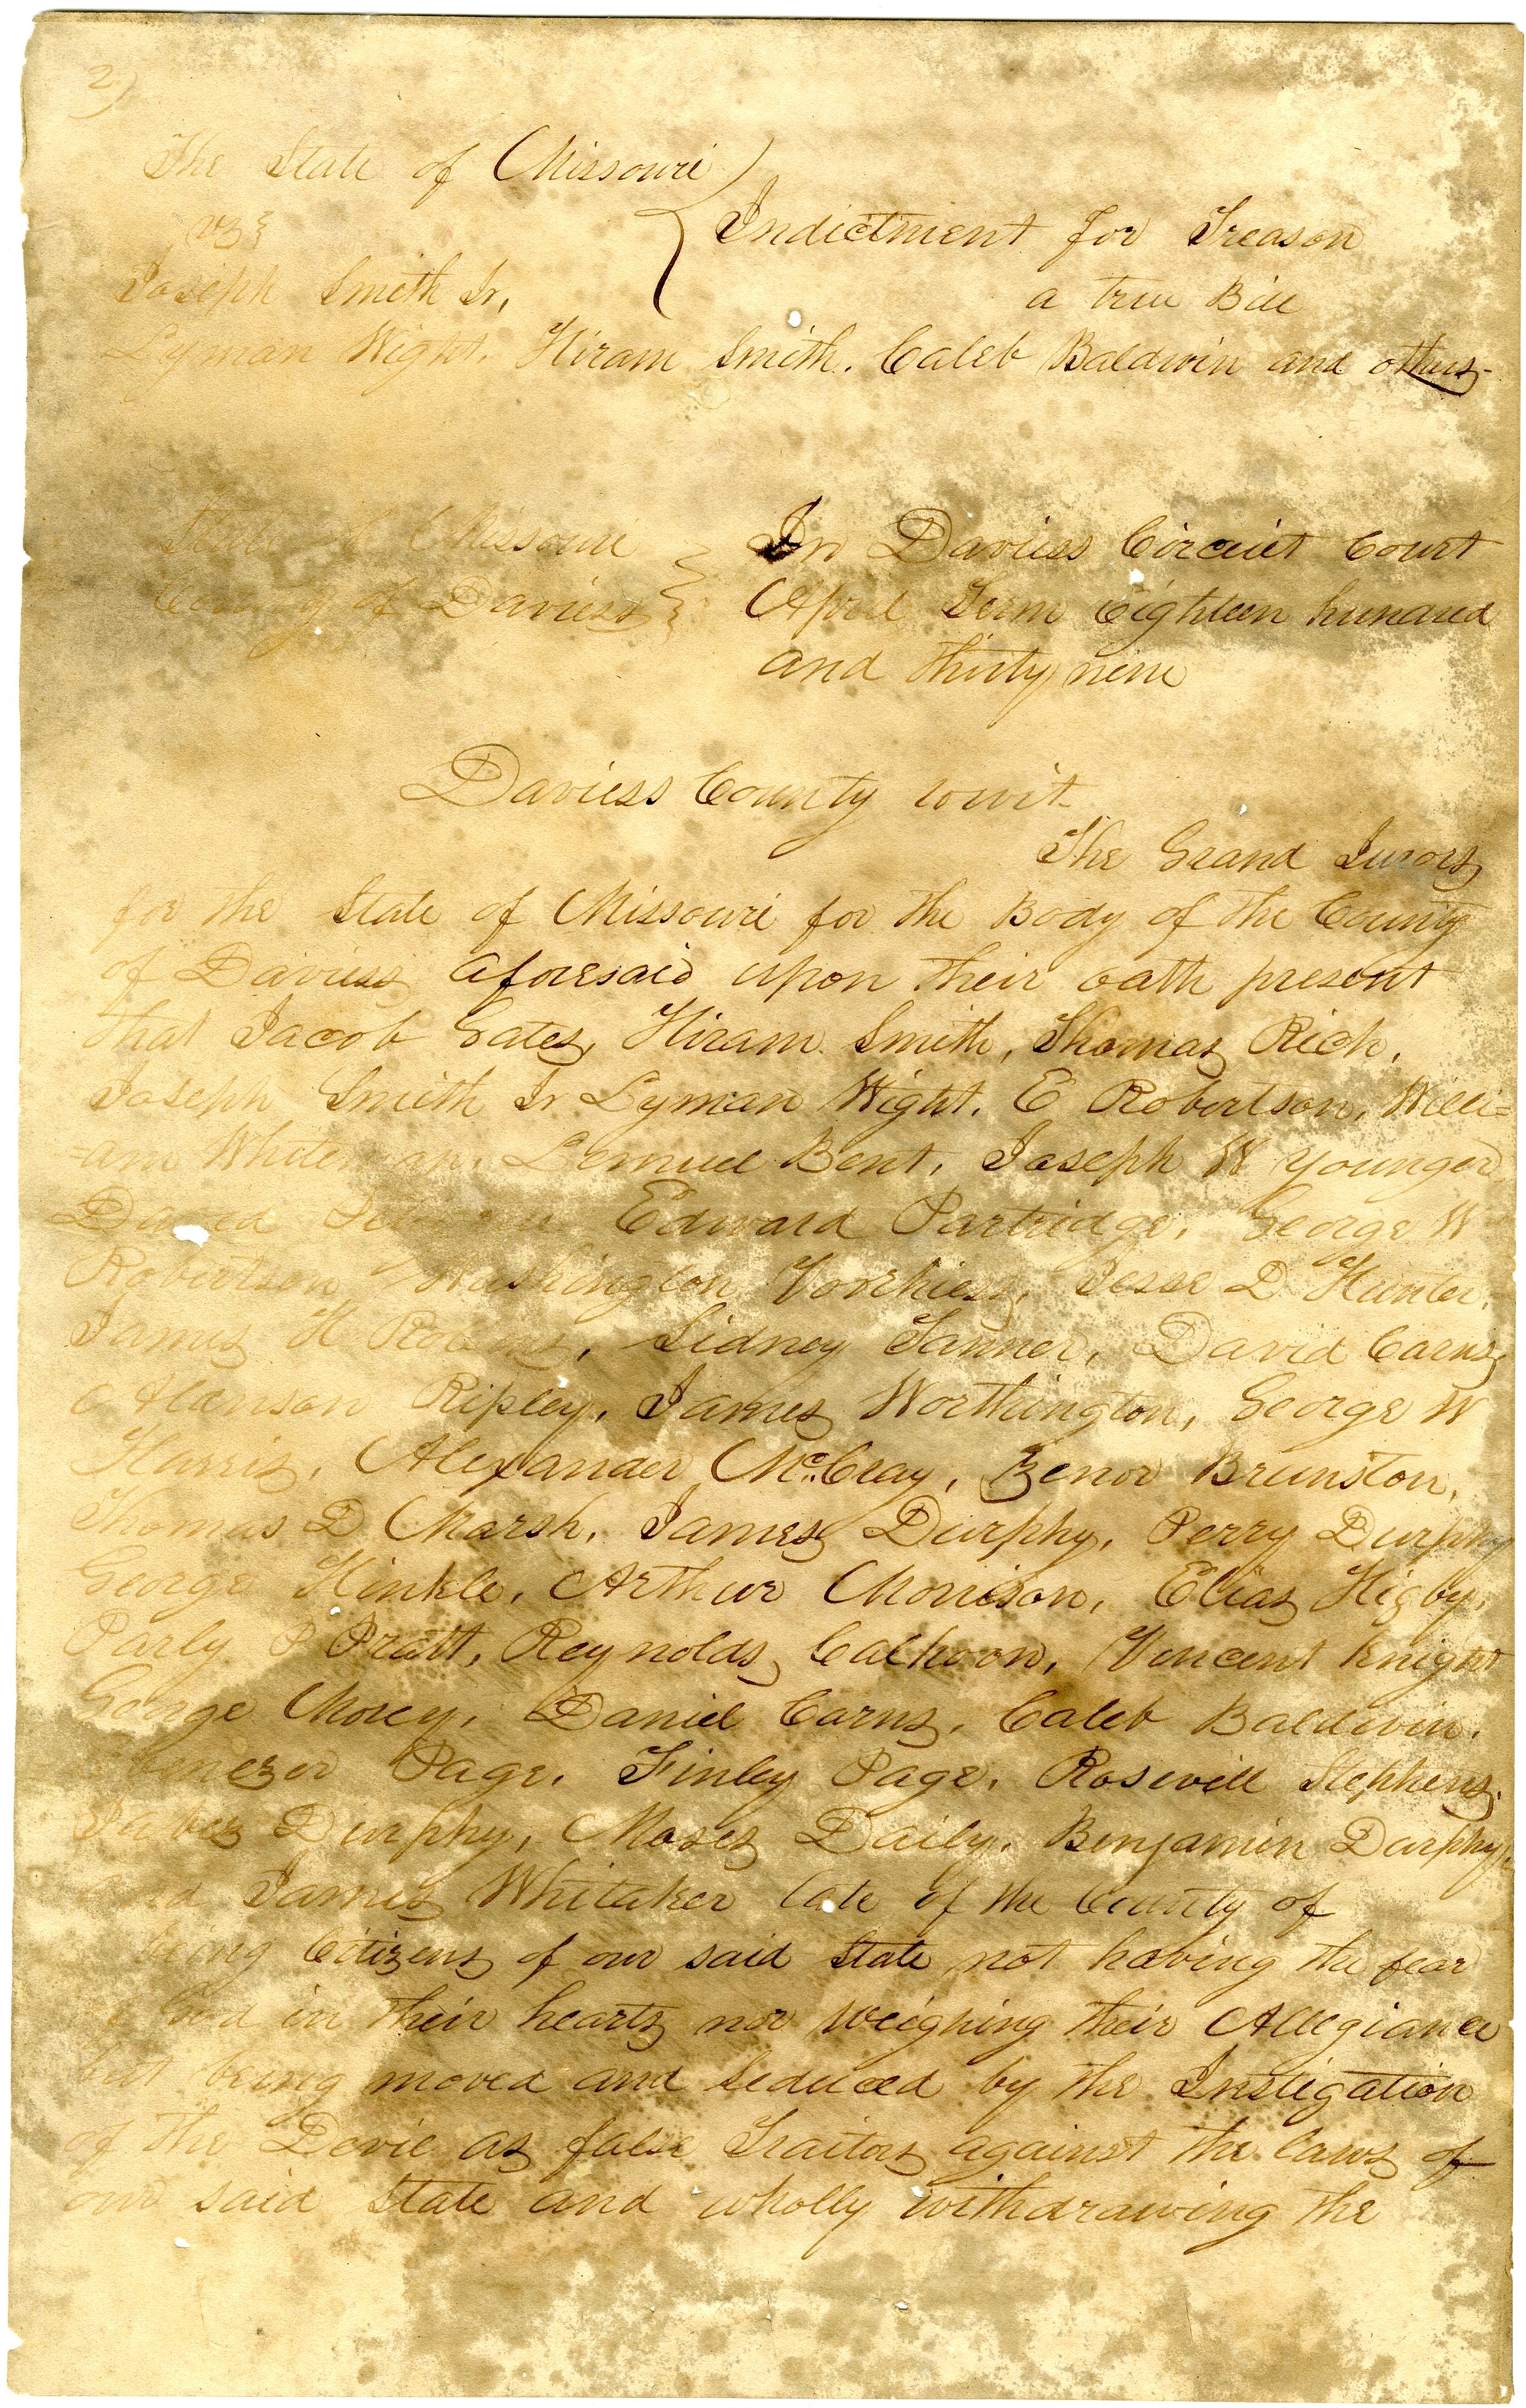 2)
The State of Missouri
vs
Joseph Smith Jr,
Indictment for Treason
a true Bill
Lyman Wight. Hiram Smith. Caleb Baldwin and others-
State of Missouri
County of Daviess
In Daviess Circuit Court
April Term Eighteen hundred
and thirty nine
Daviess County towit-
The Grand Jurors
for the State of Missouri for the Body of the County
of Daviess aforesaid upon their oath present
that Jacob Gates, Hiram Smith, Thomas Rich,
Joseph Smith Jr Lyman Wight. E Robertson, Willi=
=am White Lemuel Bent, Joseph W Younger
David Edward Partridge, George W
Robertson Washington Voorhies, Jesse D Hunter.
James H Sidney Tanner, David Carns,
Alanson Ripley, James Worthington, George W
Harris, Alexander McCray, Zenor Brunston,
Thomas D Marsh, James Durphy, Perry Durphy
George Hinkle, Arthur Morrison, Elias Higby,
Parly P Pratt, Reynolds Calhoon, Vincent Knight
George Morey, Daniel Carns, Caleb Baldwin.
Ebenezer Page, Finley Page, Rosewell Stephens.
Jabez Durphy, Moses Daily, Benjamin Durphy,
and James Whitaker late of the County of
being Citizens of our said State not having the fear
of God in their hearts nor weighing their Allegiance
but being moved and Seduced by the Instigation
of the Devil as false Traitors against the laws of
our said State and wholly withdrawing the